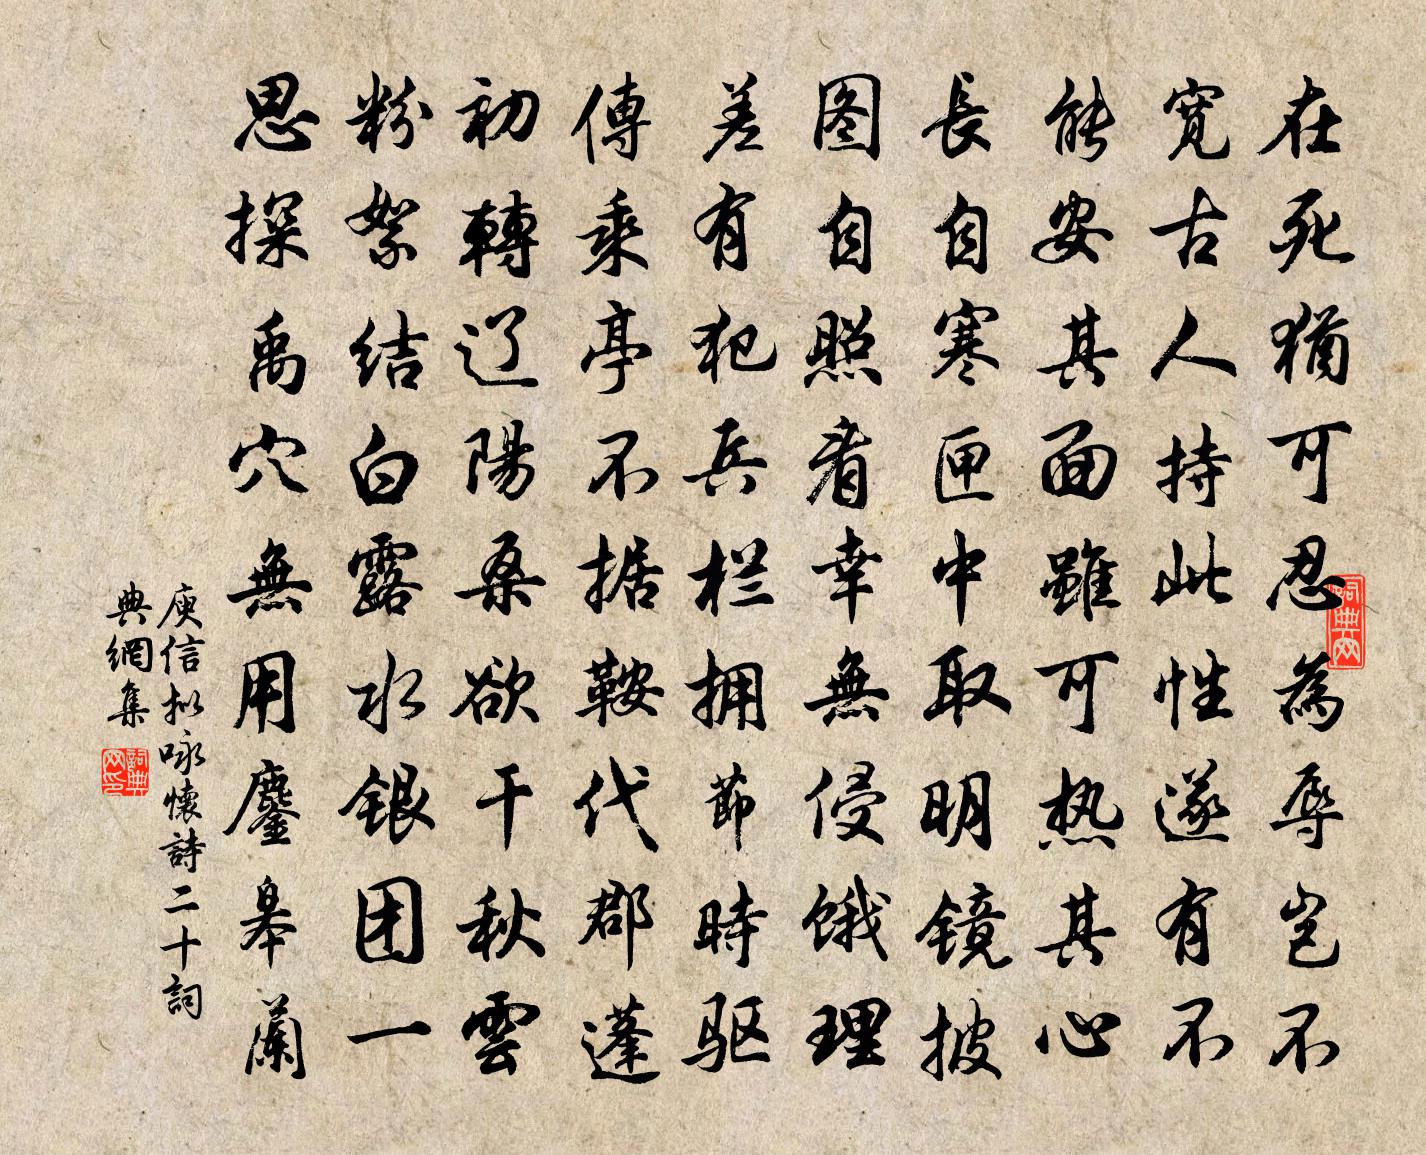 在死猶可忍為辱岂不
寬古人持此性遂有不
能安其面雖可热其心
長自寒匣中取明镜披
图自照看幸無侵饿理
差有犯兵栏拥節時驱
傳乘亭不据鞍代郡蓬
初轉辽陽桑欲干秋雲
粉絮结白露水银团一
思探禹穴無用鏖皋蘭
庾信拟咏懷詩二十詞
典網集
詞典网
詞典网印